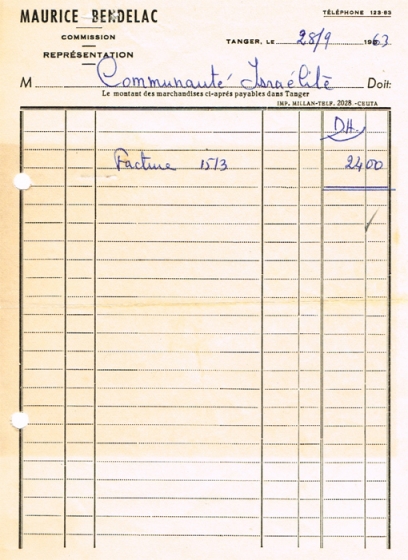 MAURICE BENDELAC
TÉLÉPHONE 123-63
COMMISSION
REPRÉSENTATION
TANGER, LE 28/9 1963
M Communauté Israélite Doit:
Le montant des marchandises ci-aprés payables dans Tanger
IMP. MILLAN-TELF. 2028 -CEUTA
DH.
Facture 1513 2400